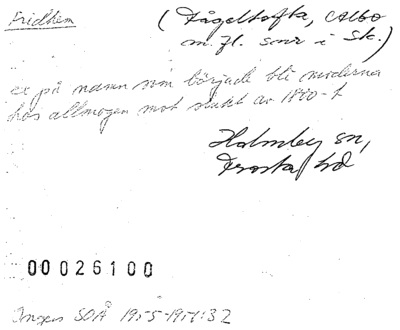 Fridhem
(Fågeltofta, Albo
m.fl. smr i Sk.)
ex på namn som började bli moderna
hos allmogen mot slutet av 1800-t
Holmby sn,
Frosta hd
00026100
SOÅ 1955-1957:32